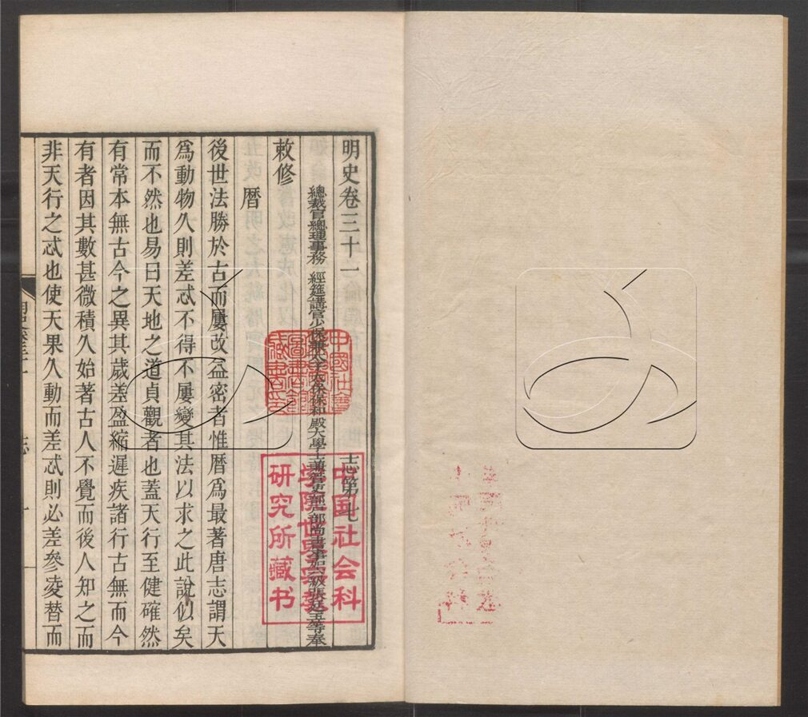 明史卷三十一　志第七
總裁官總理事務　經筵講官少保兼太子太保保和殿大學士兼管吏部戶部尚書事加六級張廷玉等奉
敕修
曆一
後世法勝於古而屢改益密者惟曆爲最著唐志謂天
爲動物久則差忒不得不屢變其法以求之此說似矣
而不然也易曰天地之道貞觀者也蓋天行至健確然
有常本無古今之異其歲差盈縮遲疾諸行古無而今
有者因其數甚微積久始著古人不覺而後人知之而
非天行之忒也使天果久動而差忒則必差參凌替而
志
中国社会科
学院世界宗教
研究所藏书